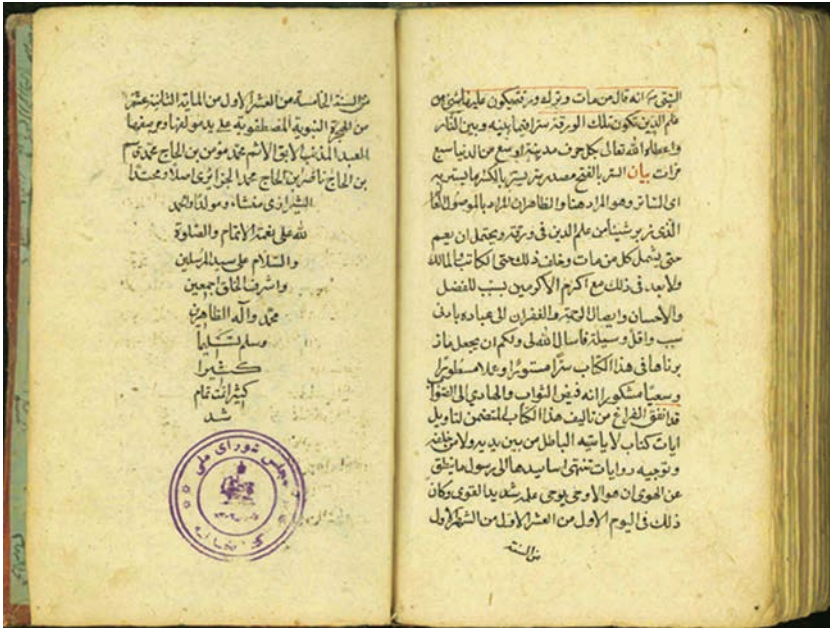 النبي ص انه قال من مات وترك ورقة يكون عليها شئ من
علم الدين تكون تلك الورقة سترا فيما بينه وبين النار
واعطاه الله تعالى بكل حرف مدينة اوسع من الدنيا سبع
مرات بيان الستر بالفتح مصدر ستر يستر بالكسر ما يستر به
اى الساتر وهو المراد هنا والظاهر ان المراد بالموصول
الذى زبر شيئا من علم الدين فى ورقة ويحتمل ان يعم
حتى يشمل كل من مات وخلف ذلك حتى الكاتب والمالك
ولا بعد فى ذلك مع اكرم الاكرمين بسبب للفضل
والاحسان وايصال الرحمة والغفران الى عباده بادنى
سبب واقل وسيلة فاسال الله لى ولكم ان يجعل ماز
برناها فى هذا الكتاب سترا مستورا وعملا مسطورا
وسعيا مشكورا انه فيض الثواب والهادي الى الصواب
قد اتفق الفراغ من تاليف هذا الكتاب المتضمن لتاويل
ايات كتاب لا ياتيه الباطل من بين يديه ولا من خلفه
وتوجيه روايات تنتهى اسانيدها الى رسول ما ينطق
عن الهوى ان هو الا وحى يوحى علمه شديد القوى وكان
ذلك فى اليوم الاول من العشر الاول من الشهر الاول
من السنة
من السنة الخامسة من العشر الاول من الماية الثانية عشر
من الهجرة النبوية المصطفوية على يد مولفها ومرصفها
العبد المذنب الابق الاثم محمد مؤمن بن الحاج محمد قاسم
بن الحاج ناصر بن الحاج محمد الجزائرى اصلا ومحتدا
الشيرازى منشاء ومولدا والحمد
لله على نعمة الاتمام والصلوة
والسلام على سيد المرسلين
واشرف الخلق اجمعين
محمد وآله الطاهرين
وسلم تسليما
كثيرا
كثيرا تمام
شد
مجلس شوراى ملى
كتابخانه